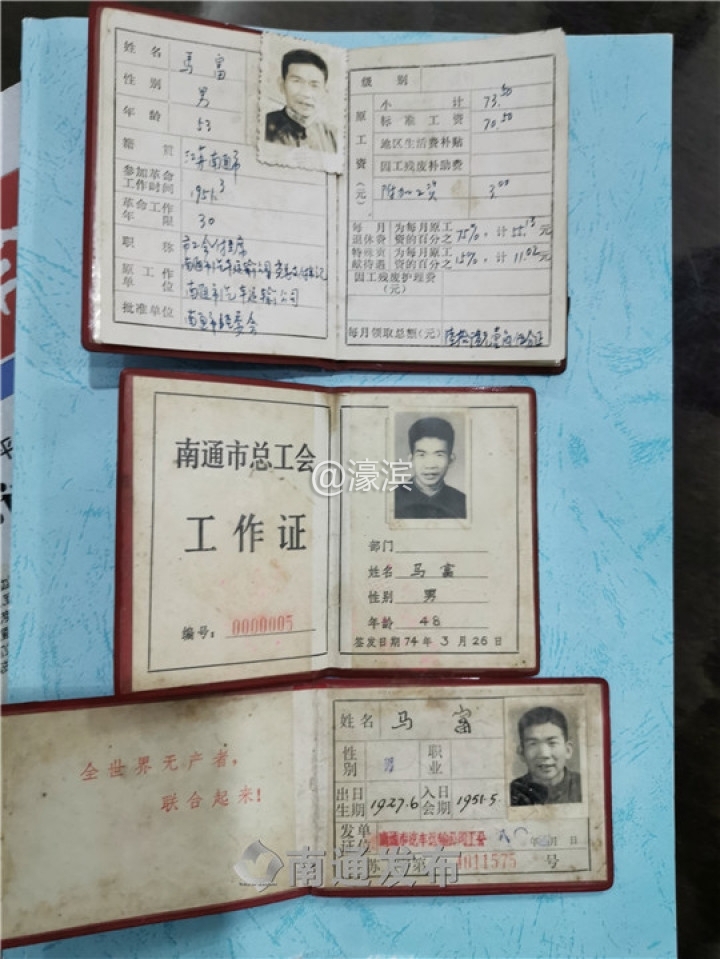 姓名 马富
性别 男
年龄 53
籍贯 江苏南通市
参加革命工作时间 1951.3
革命工作年限 30
职称 市工会付主席
原工作单位 南通市汽车运输公司
批准单位
级别
原工资(元)
小计 73.50
标准工资 70.50
地区生活费补贴
因工残废补助费
附加工资 3.00
每月退休费 为每月原工资的百分之75%,计55.13元
特殊贡献待遇 为每月原工资的百分之15%,计11.02元
因工残废护理费(元)
每月领取总额(元)
南通市总工会
工作证
编号:0000005
部门
姓名 马富
性别 男
年龄 48
签发日期74年3月26日
@濠滨
全世界无产者,
联合起来!
姓名 马富
性别 男 职业
出生日期 1927.6 入会日期 1951.5.
发证单位 南通市汽车运输公司工会 年 月 日
苏 第 4011575 号
南通发布